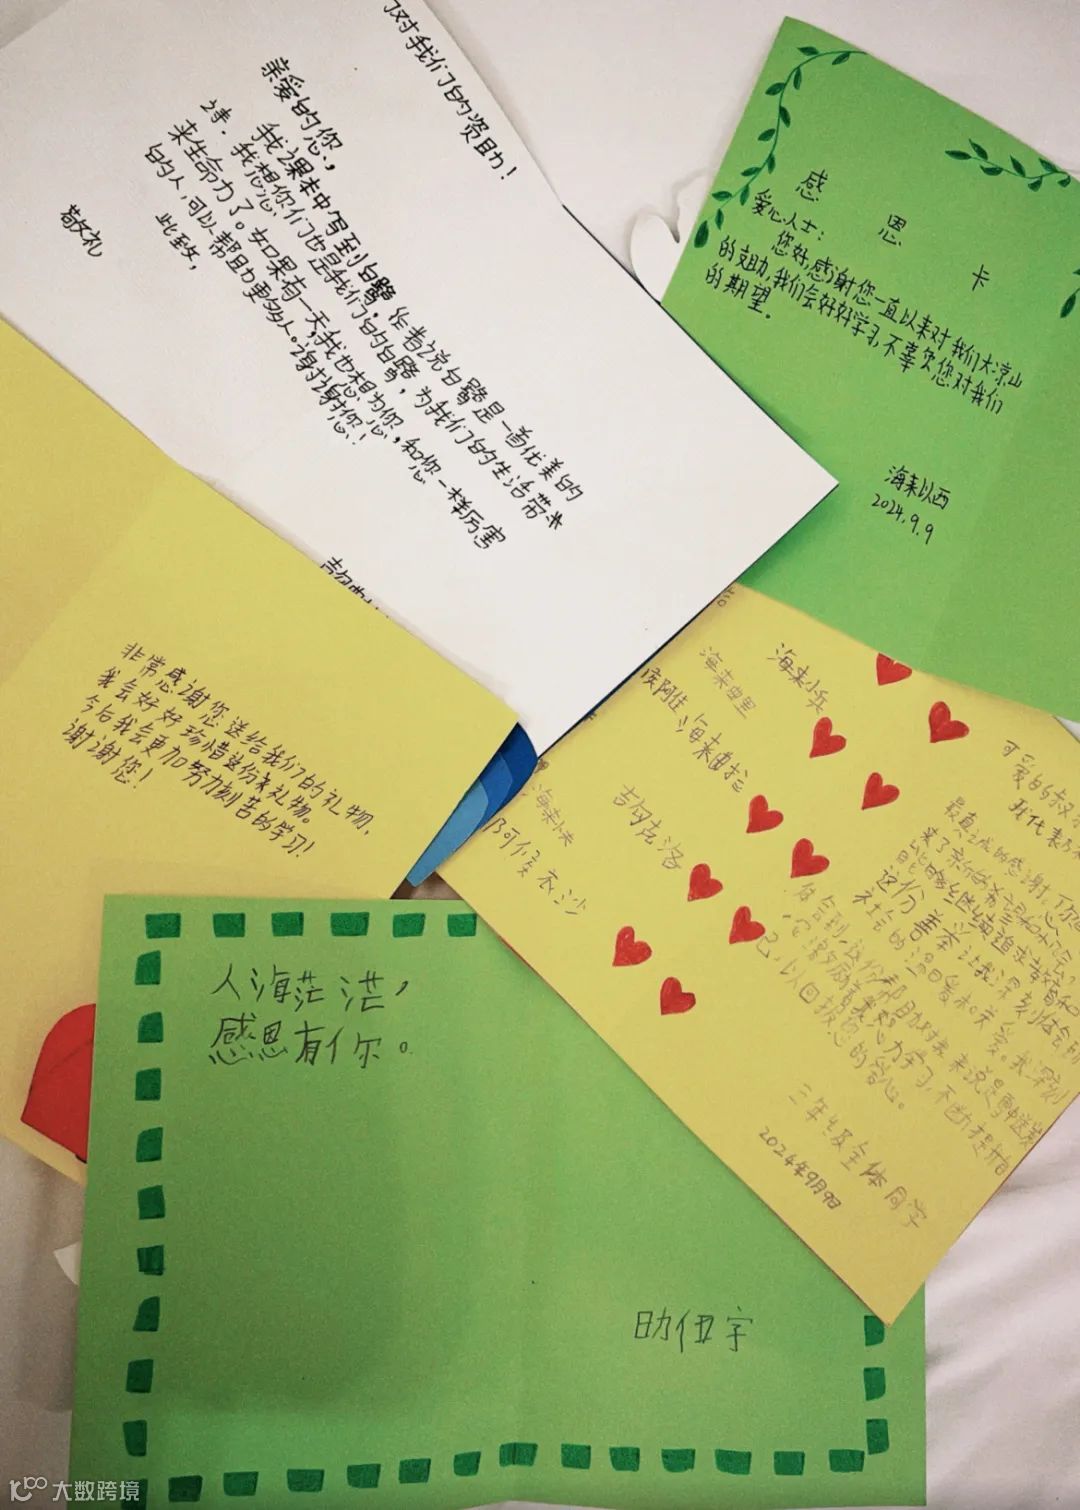 对我们的资助！
亲爱的您，
我课本中写到白鹭，作者说白鹭是一首优美的
诗．我想您们也是我们的白鹭，为我们的生活带来
来生命力了。如果有一天，我也想为您，和您一样厉害
的人，可以帮助更多人。谢谢您！
此致，
敬礼
感恩卡
爱心人士：
您好，感谢您一直以来对我们大凉山
的支助，我们会好好学习，不辜欠您对我们
的期望。
海来以西
2024.9.9
非常感谢您送给我们的礼物，
我会好好珍惜这份礼物。
今后我会更加努力刻苦的学习！
谢谢您！
海来小兵
海来曲里
海来曲拉
吉克洛
海来小夫
阿候衣沙
可爱的叔
我代表
最真诚的感谢，
来了
继续追求
这份善举让我深刻体会到
社会的温暖和关爱。我深刻
体会到，这份帮助对我来说是雪中送炭
心力学习，不断提升自
己，以回报您的爱心。
三年级全体同学
2024年9月9日
人海茫茫，
感恩有你。
大数跨境